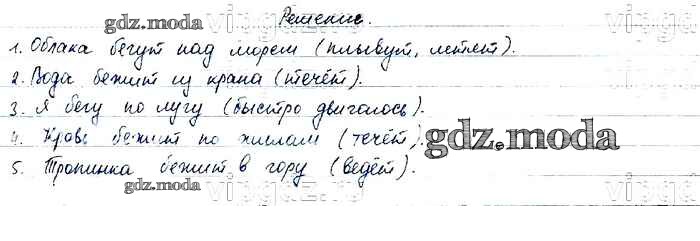 Решение.
1. Облака бегут над морем (плывут, летят).
2. Вода бежит из крана (течёт).
3. Я бегу по лугу (быстро двигалось).
4. Кровь бежит по жилам (течёт).
5. Тропинка бежит в гору (ведёт).
gdz.moda
gdz.moda
gdz.moda